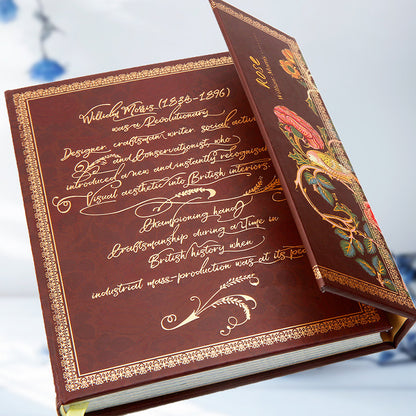 William Morris (1834-1896)
was a Revolutionary
Designer, craftsman, writer, social activist
and Conservationist, who
introduced a new and instantly recognisable
Visual aesthetic into British interiors.
Championing hand
Craftsmanship during a Time in
British history when
industrial mass-production was at its peak
Rose
William Morris